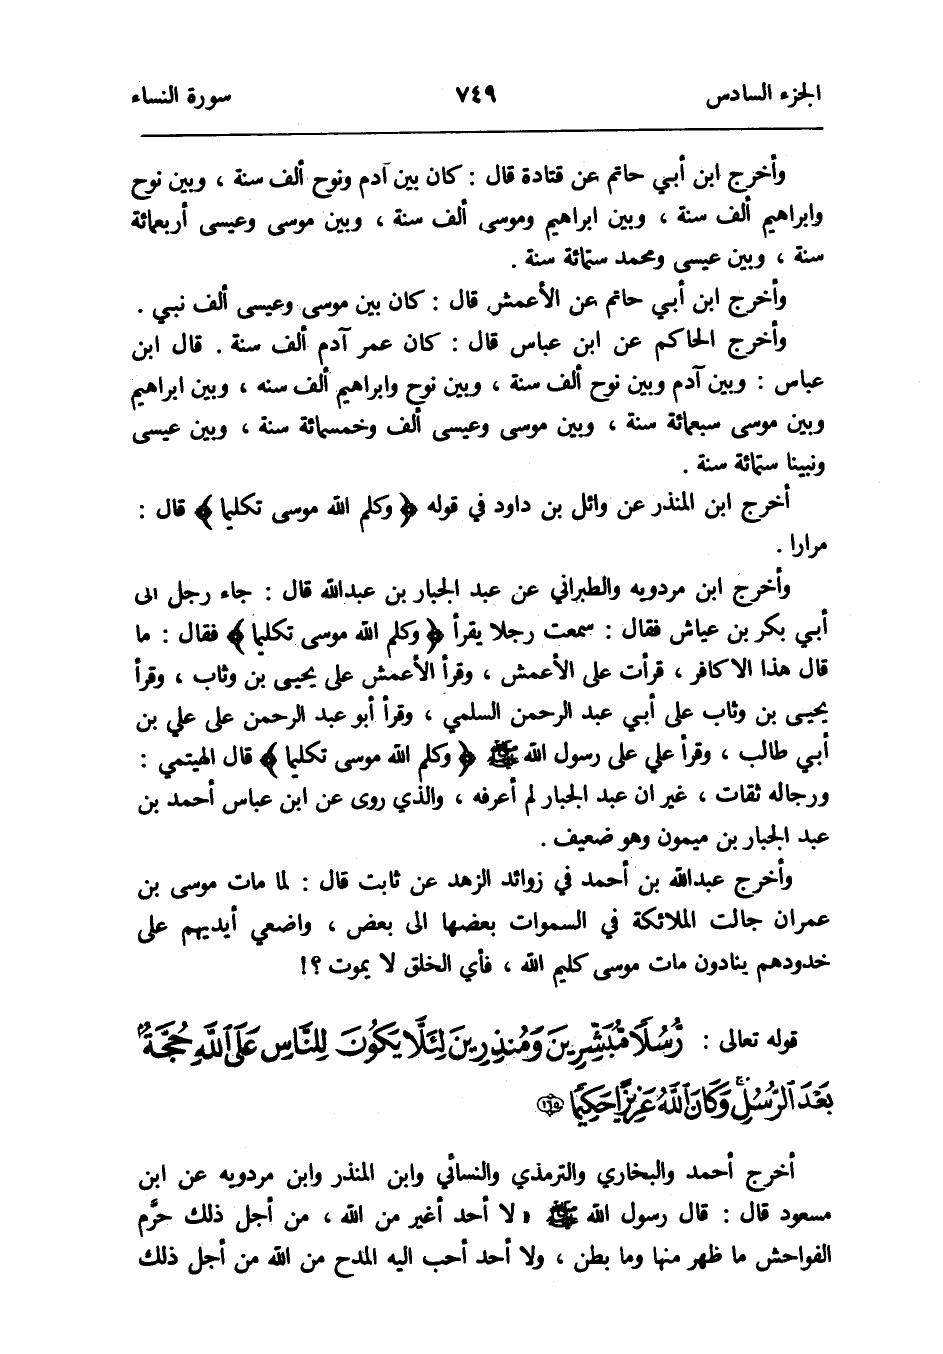 الجزء السادس ٧٤٩ سورة النساء
وأخرج ابن أبي حاتم عن قتادة قال : كان بين آدم ونوح ألف سنة ، وبين نوح
وابراهيم ألف سنة ، وبين ابراهيم وموسى ألف سنة ، وبين موسى وعيسى أربعمائة
سنة ، وبين عيسى ومحمد ستمائة سنة .
وأخرج ابن أبي حاتم عن الأعمش قال : كان بين موسى وعيسى ألف نبي .
وأخرج الحاكم عن ابن عباس قال : كان عمر آدم ألف سنة . قال ابن
عباس : وبين آدم وبين نوح ألف سنة ، وبين نوح وابراهيم ألف سنه ، وبين ابراهيم
وبين موسى سبعمائة سنة ، وبين موسى وعيسى ألف وخمسمائة سنة ، وبين عيسى
ونبينا ستمائة سنة .
أخرج ابن المنذر عن وائل بن داود في قوله ﴿ وكلم الله موسى تكليما ﴾ قال :
مرارا .
وأخرج ابن مردويه والطبراني عن عبد الجبار بن عبدالله قال : جاء رجل الى
أبي بكر بن عياش فقال : سمعت رجلا يقرأ ﴿ وكلم الله موسى تكليما ﴾ فقال : ما
قال هذا الا كافر ، قرأت على الأعمش ، وقرأ الأعمش على يحيى بن وثاب ، وقرأ
يحيى بن وثاب على أبي عبد الرحمن السلمي ، وقرأ أبو عبد الرحمن على علي بن
أبي طالب ، وقرأ علي على رسول الله ﷺ ﴿ وكلم الله موسى تكليما ﴾ قال الهيتمي :
ورجاله ثقات ، غير ان عبد الجبار لم أعرفه ، والذي روى عن ابن عباس أحمد بن
عبد الجبار بن ميمون وهو ضعيف .
وأخرج عبدالله بن أحمد في زوائد الزهد عن ثابت قال : لما مات موسى بن
عمران جالت الملائكة في السموات بعضها الى بعض ، واضعي أيديهم على
خدودهم ينادون مات موسى كليم الله ، فأي الخلق لا يموت ؟!
قوله تعالى : رُّسُلًا مُّبَشِّرِينَ وَمُنذِرِينَ لِئَلَّا يَكُونَ لِلنَّاسِ عَلَى ٱللَّهِ حُجَّةٌۢ
بَعْدَ ٱلرُّسُلِۚ وَكَانَ ٱللَّهُ عَزِيزًا حَكِيمًا ١٦٥
أخرج أحمد والبخاري والترمذي والنسائي وابن المنذر وابن مردويه عن ابن
مسعود قال : قال رسول الله ﷺ « لا أحد أغير من الله ، من أجل ذلك حرَّم
الفواحش ما ظهر منها وما بطن ، ولا أحد أحب اليه المدح من الله من أجل ذلك